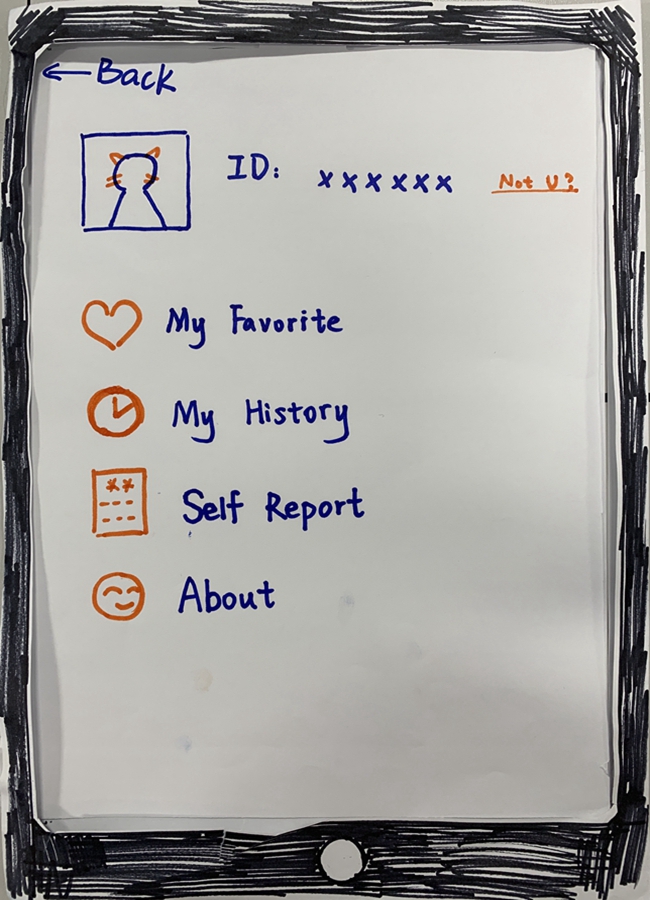 ← Back
ID: xxxxxx Not U?
My Favorite
My History
Self Report
About